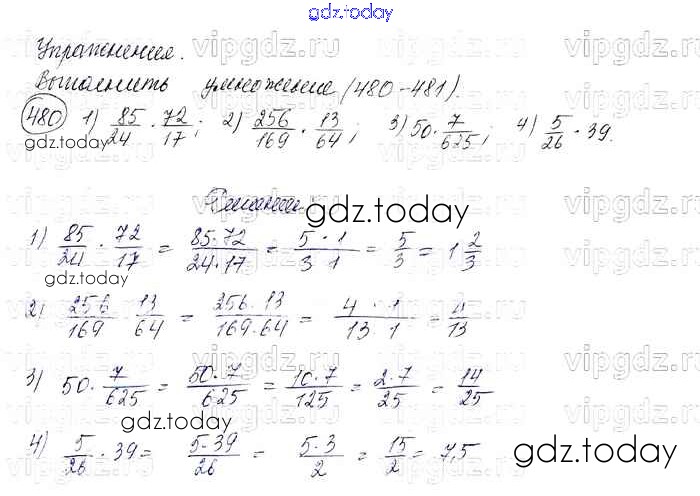 gdz.today
Упражнения.
Выполнить умножение (480-481).
480 1) 85/24 · 72/17; 2) 256/169 · 13/64; 3) 50 · 7/625; 4) 5/26 · 39.
gdz.today
Решение
gdz.today
1) 85/24 · 72/17 = 85·72/24·17 = 5 · 1/3 1 = 5/3 = 1 2/3
gdz.today
2) 256/169 13/64 = 256·13/169·64 = 4 · 1/13 · 1 = 4/13
3) 50 · 7/625 = 50·7/625 = 10·7/125 = 2·7/25 = 14/25
gdz.today
4) 5/26 · 39 = 5·39/26 = 5·3/2 = 15/2 = 7,5
gdz.today
vipgdz.ru vipgdz.ru vipgdz.ru